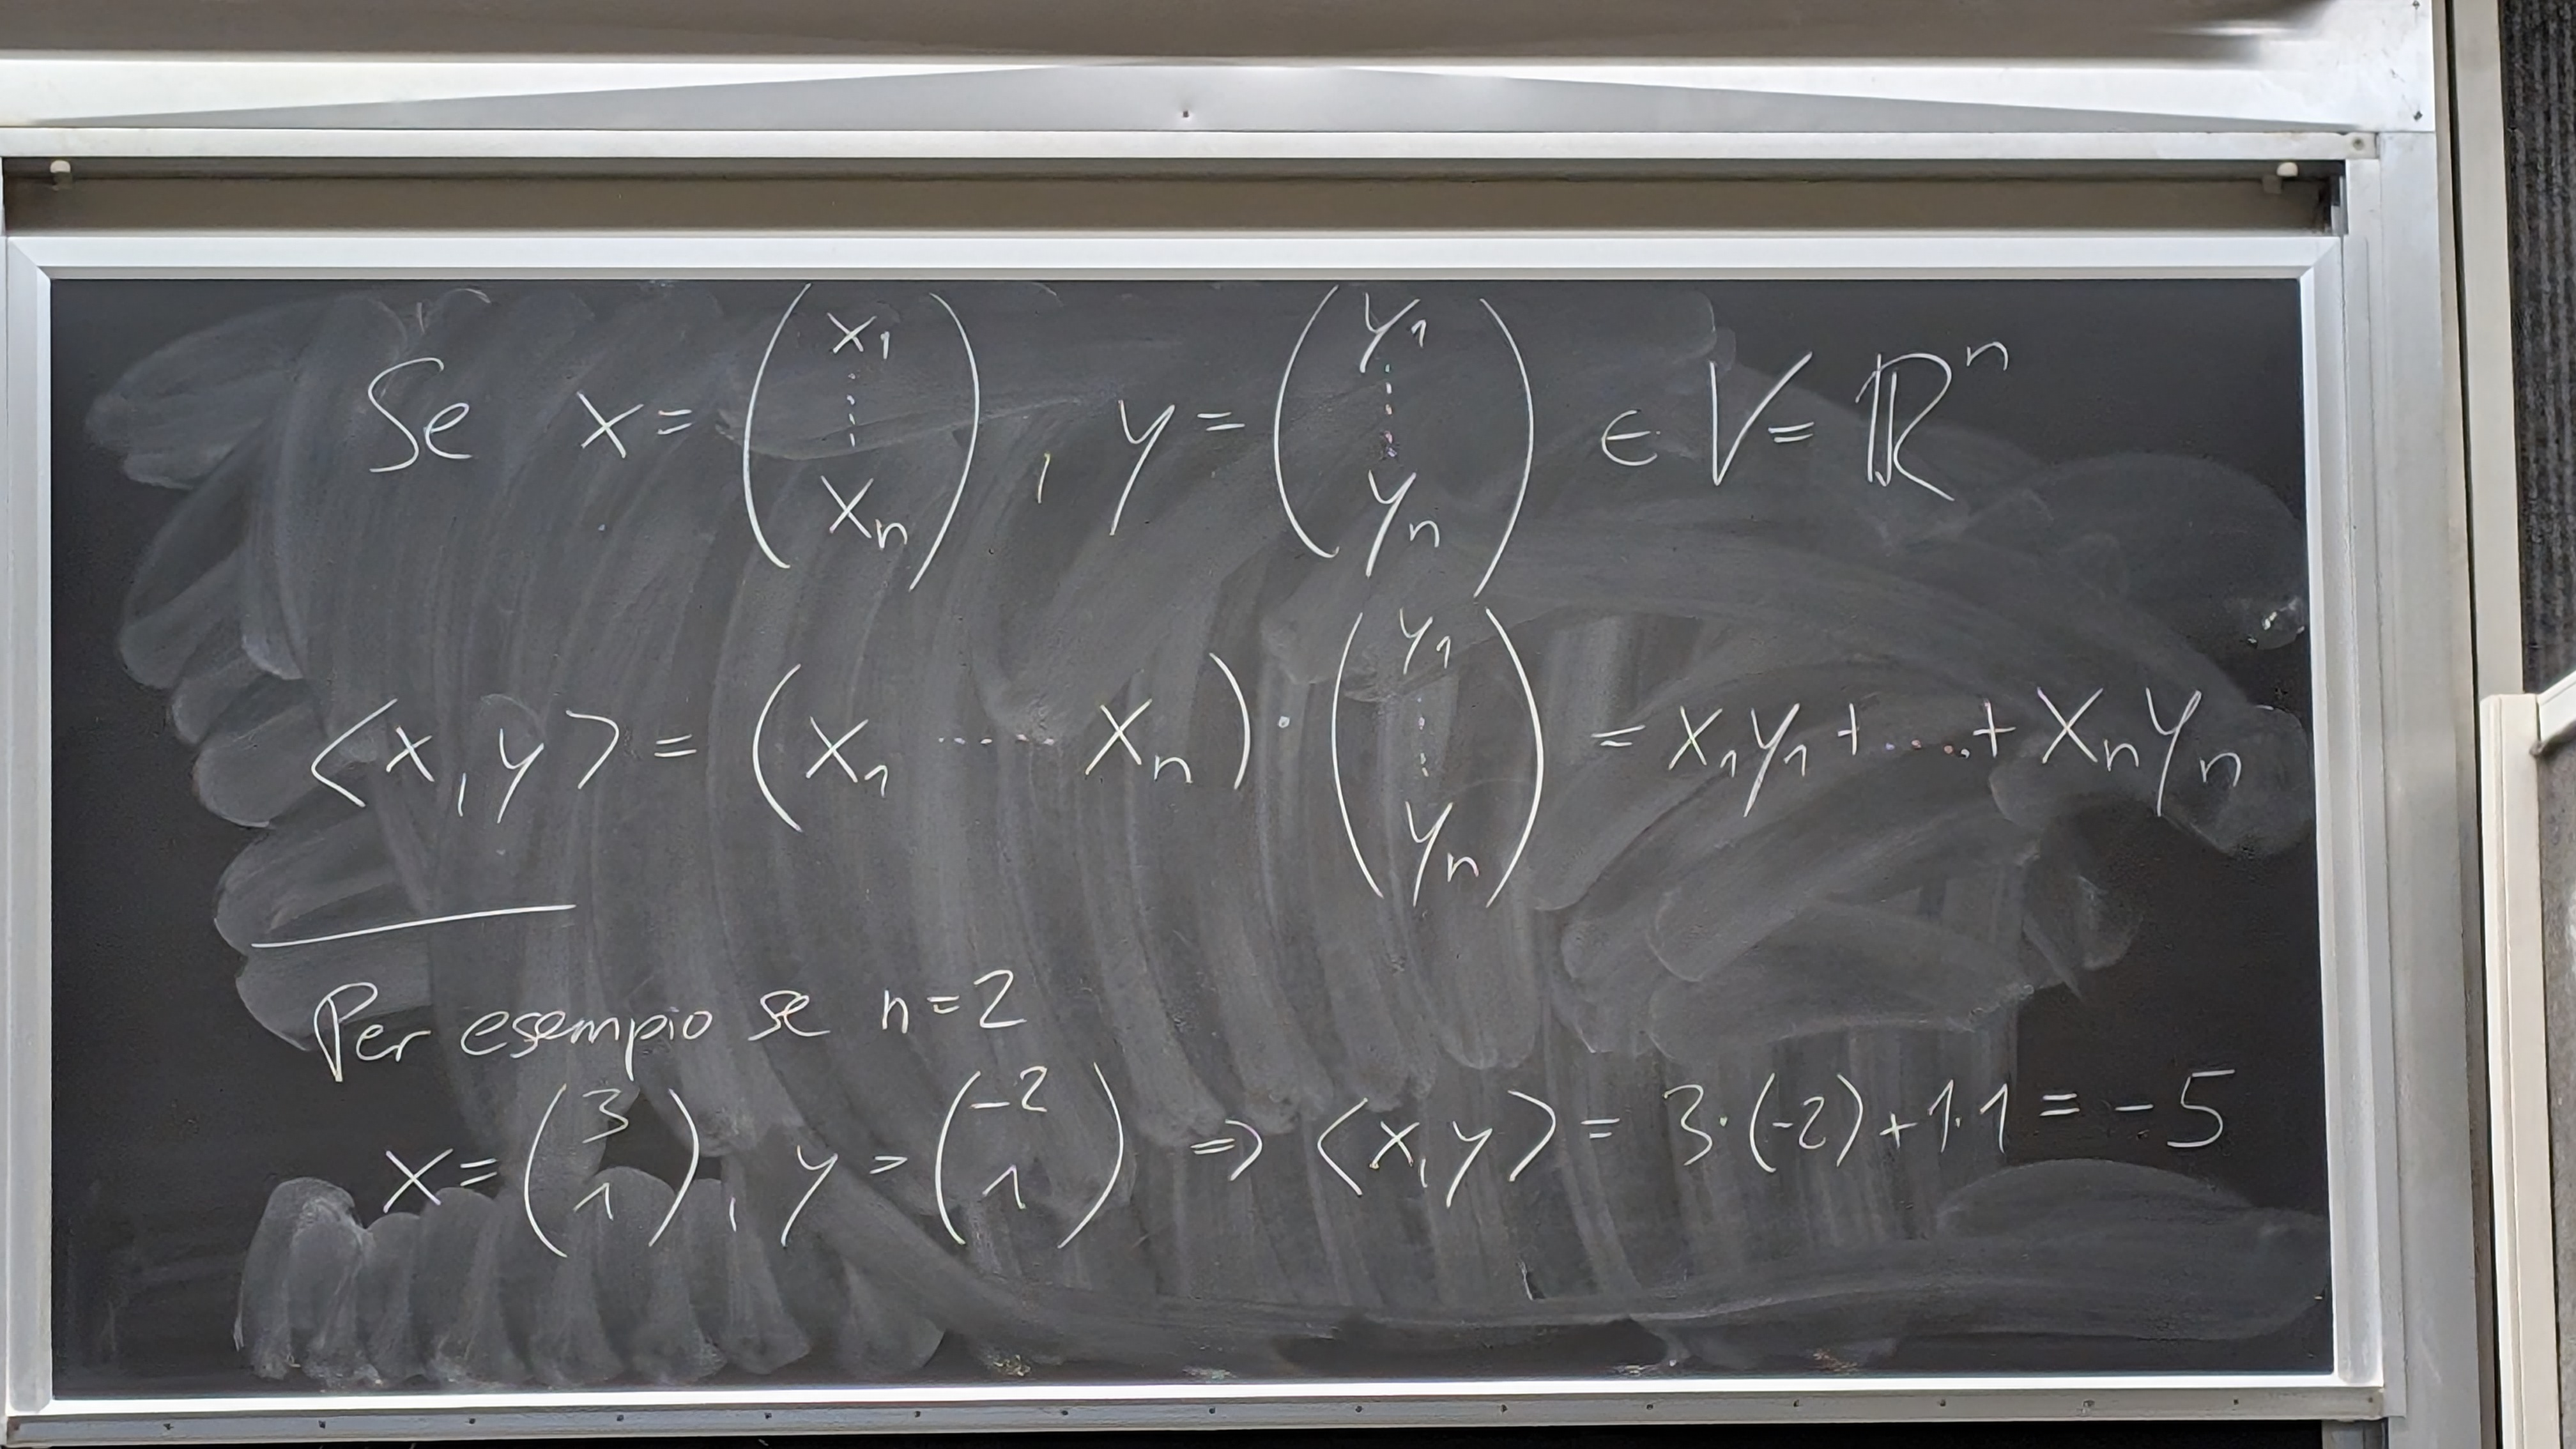 Se x = (x₁ ⋮ xₙ), y = (y₁ ⋮ yₙ) ∈ V = ℝⁿ
<x, y> = (x₁ ..... xₙ) · (y₁ ⋮ yₙ) = x₁y₁ + ..... + xₙyₙ
Per esempio se n=2
x = (3 1), y = (-2 1) ⇒ <x, y> = 3·(-2)+1·1 = -5